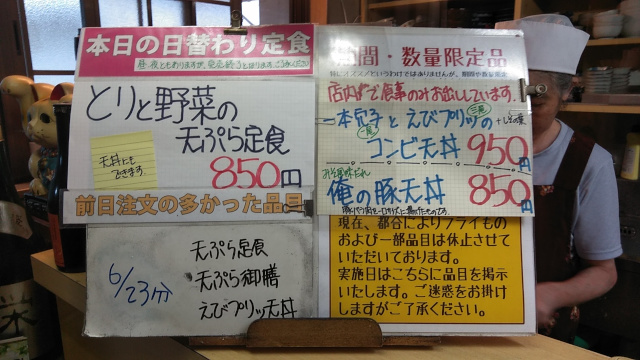 本日の日替わり定食
昼・夜ともありますが、完売終了となります ご了承ください
とりと野菜の
天ぷら定食
天丼にも
できます。
850円
前日注文の多かった品目
6/23分
天ぷら定食
天ぷら御膳
えびプリッツ天丼
期間・数量限定品
特にオススメというわけではありませんが、期間や数量限定
店内で食事のみお出ししています。
一本穴子とえびプリッツの
コンビ天丼 950円
俺の豚天丼 850円
現在、都合によりフライもの
および一部品目は休止させて
いただいております。
実施日はこちらに品目を掲示
いたします。ご迷惑をお掛け
しますがご了承ください。